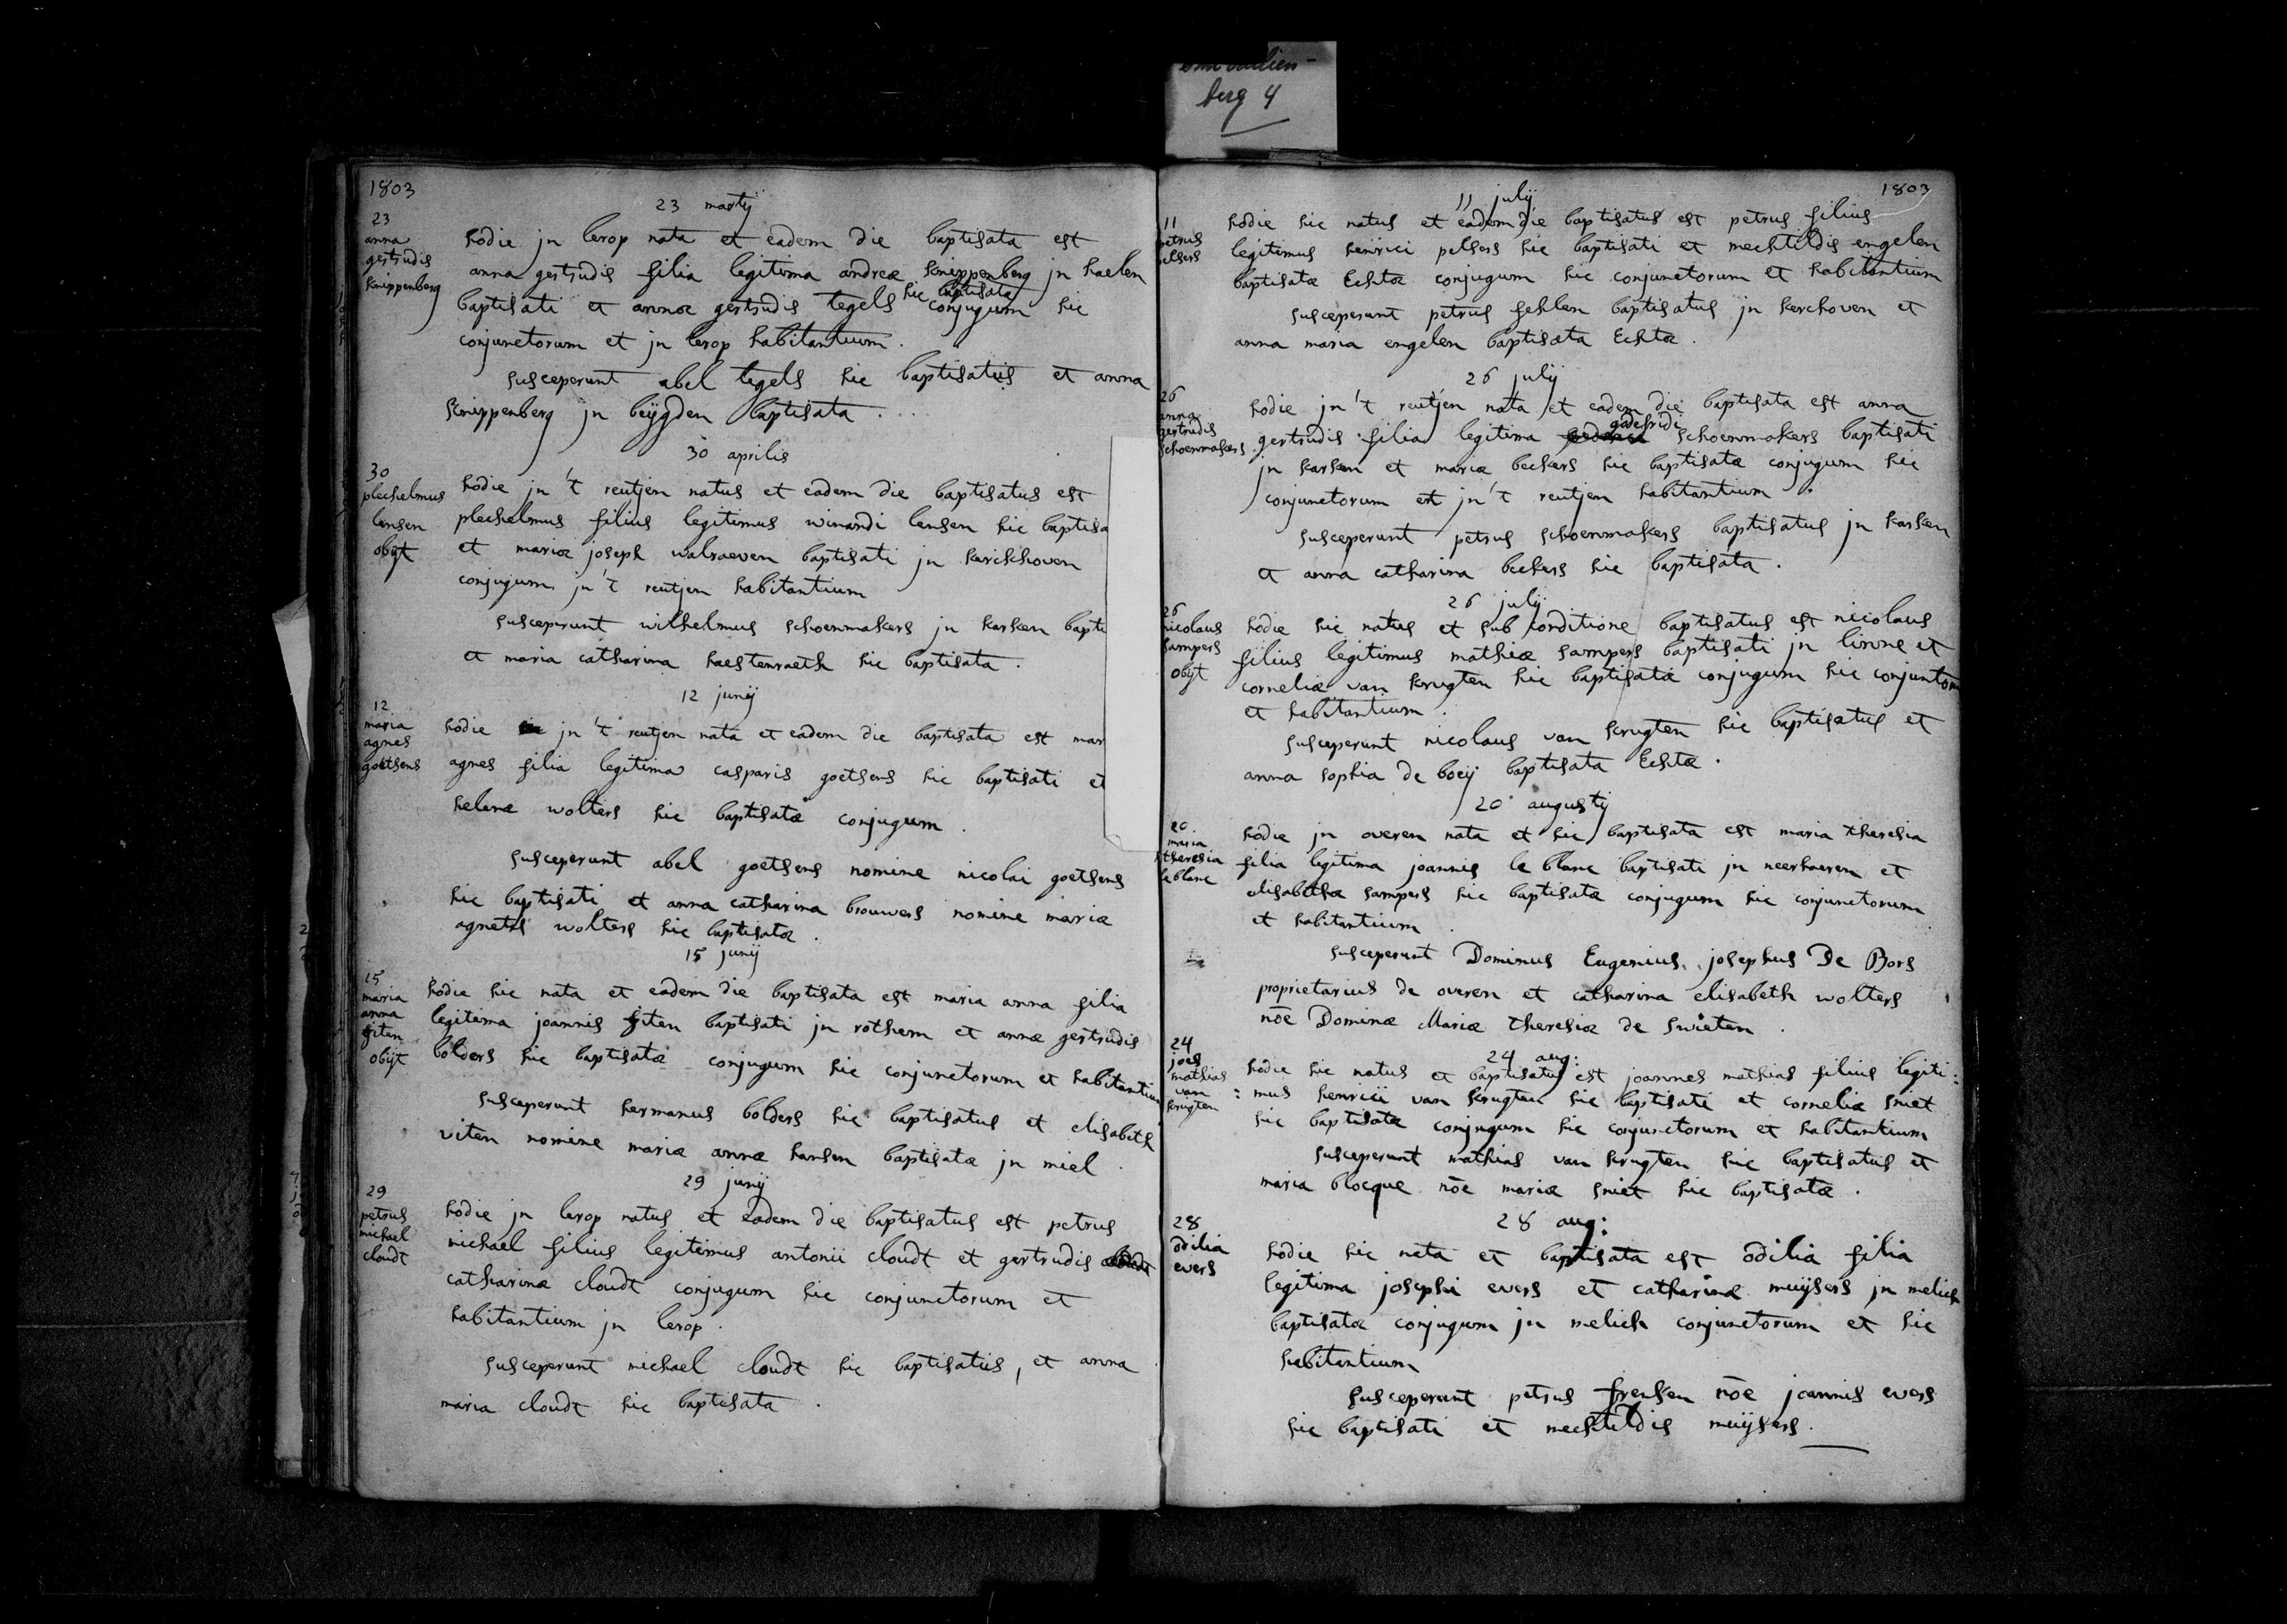 berg 4
1803
23 martij
23
anna
gertrudis
knippenberg
hodie jn lerop nata et eadem die baptisata est
anna gertrudis filia legitima andreæ knippenberg jn haelen
hic baptisata
baptisati et annæ gertrudis tegels conjugum hic
conjunctorum et jn lerop habitantium.
susceperunt abel tegels hic baptisatus et anna
knippenberg jn beijgden baptisata.
30 aprilis
30
plechelmus
lensen
obijt
hodie jn 't reutjen natus et eadem die baptisatus est
plechelmus filius legitimus winandi lensen hic baptisa
et mariæ joseph walraeven baptisati jn kerckhoven
conjugum jn 't reutjen habitantium
susceperunt wilhelmus schoenmakers jn karken bapti
et maria catharina haestenraeth hic baptisata.
12 junij
12
maria
agnes
goetsens
hodie jn 't reutjen nata et eadem die baptisata est mar
agnes filia legitima casparis goetsens hic baptisati et
helenæ wolters hic baptisatæ conjugum.
susceperunt abel goetsens nomine nicolai goetsens
hic baptisati et anna catharina brouwers nomine mariæ
agnetis wolters hic baptisatæ.
15 junij
15
maria
anna
fiten
obijt
hodie hic nata et eadem die baptisata est maria anna filia
legitima joannis fiten baptisati jn rothem et annæ gertrudis
bolders hic baptisatæ conjugum hic conjunctorum et habitantium
susceperunt hermanus bolders hic baptisatus et elisabeth
viten nomine mariæ annæ hansen baptisatæ jn miel.
29 junij
29
petrus
michael
cloudt
hodie jn lerop natus et eadem die baptisatus est petrus
michael filius legitimus antonii cloudt et gertrudis
catharinæ cloudt conjugum hic conjunctorum et
habitantium jn lerop.
susceperunt michael cloudt hic baptisatus, et anna
maria cloudt hic baptisata.
1803
11 julij
11
petrus
pelsers
hodie hic natus et eadem die baptisatus est petrus filius
legitimus henrici pelsers hic baptisati et mechtildis engelen
baptisatæ Echtæ conjugum hic conjunctorum et habitantium
susceperunt petrus fehlen baptisatus jn kerchoven et
anna maria engelen baptisata Echtæ.
26 julij
26
anna
gertrudis
schoenmakers
hodie jn 't reutjen nata et eadem die baptisata est anna
godefridi
gertrudis filia legitima schoenmakers baptisati
jn karken et mariæ beckers hic baptisatæ conjugum hic
conjunctorum et jn 't reutjen habitantium.
susceperunt petrus schoenmakers baptisatus jn karken
et anna catharina beckers hic baptisata.
26 julij
26
nicolaus
sampers
obijt
hodie hic natus et sub conditione baptisatus est nicolaus
filius legitimus mathiæ sampers baptisati jn linne et
corneliæ van krugten hic baptisatæ conjugum hic conjuntom
et habitantium.
susceperunt nicolaus van krugten hic baptisatus et
anna sophia de boeij baptisata Echtæ.
20 augustij
20.
maria
theresia
le blanc
hodie jn overen nata et hic baptisata est maria theresia
filia legitima joannis le blanc baptisati jn neerhaeren et
elisabethæ sampers hic baptisatæ conjugum hic conjunctorum
et habitantium.
susceperunt Dominus Eugenius josephus De Bors
proprietarius de overen et catharina elisabeth wolters
nōe Dominæ Mariæ theresiæ de swieten.
24 aug:
24
joes
mathias
van
krugten
hodie hic natus et baptisatus est joannes mathias filius legiti:
: mus henrici van krugten hic baptisati et corneliæ sniet
hic baptisatæ conjugum hic conjunctorum et habitantium
susceperunt mathias van krugten hic baptisatus et
maria blocque nōe mariæ sniet hic baptisatæ.
28 aug:
28
odilia
evers
hodie hic nata et baptisata est odilia filia
legitima josephi evers et catharinæ muijsers jn melich
baptisatæ conjugum jn melich conjunctorum et hic
habitantium
susceperunt petrus frenken nōe joannis evers
hic baptisati et mechtildis muijsers.